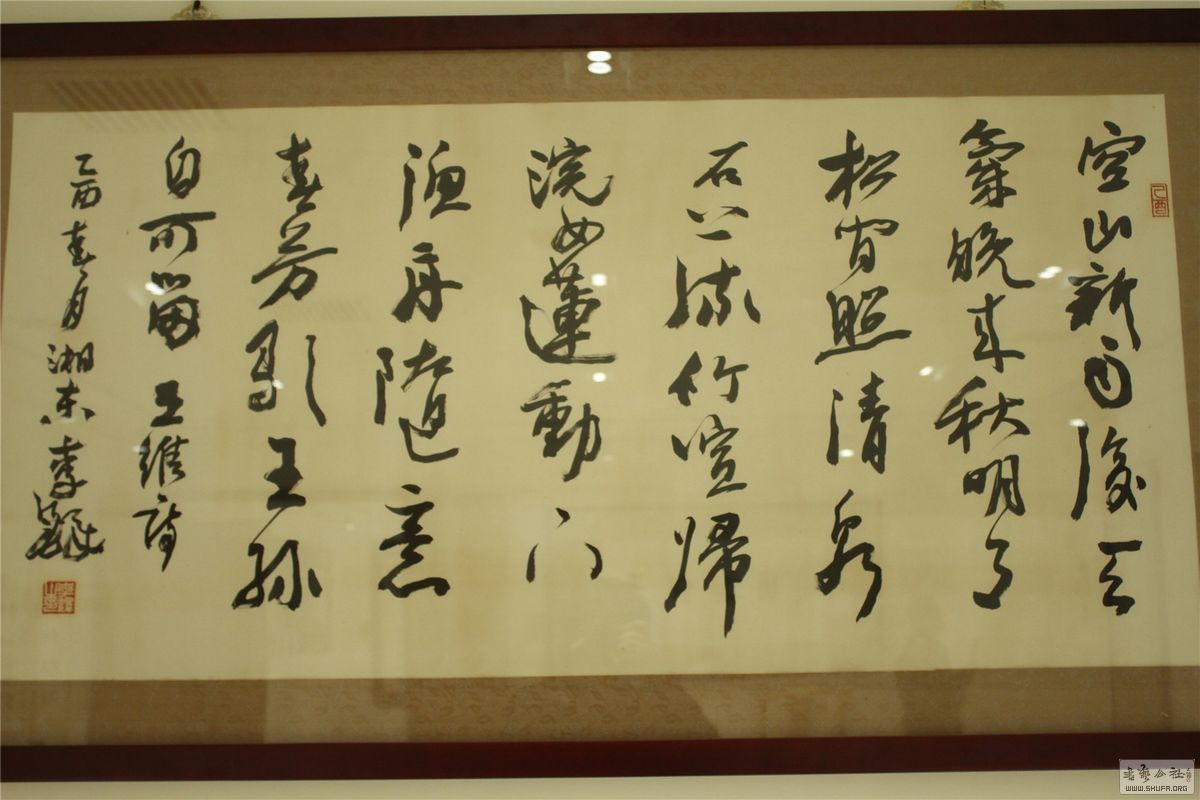 乙酉
空山新雨後天
氣晚来秋明月
松間照清泉
石上流竹喧歸
浣女蓮動下
漁舟隨意
春芳歇王孫
自可留 王維詩
乙酉春月湘東李鐸
書藝公社
WWW.SHUFA.ORG